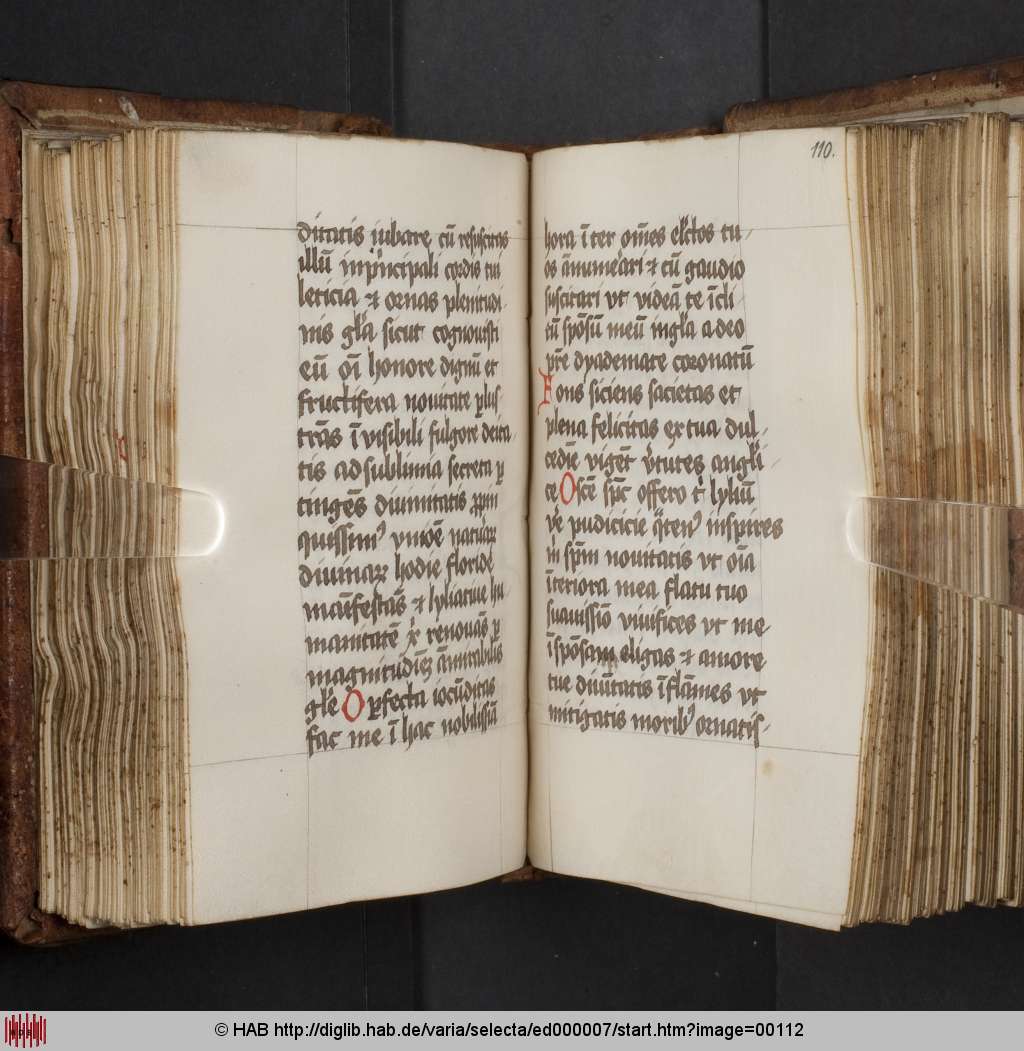 ditatis iubare cū resuscitas
illū inpͥncipali cordis tui
leticia et ornas plenitudi
nis gl̄a sicut cognouisti
eū oī honore dignū et
fructifera nouitate ꝑlus
trās ī visibili fulgore deita
tis ad sublimia secreta ꝑ
tingēs diuinitatis ꝓpin
quissimꝰ vnioē naturaꝝ
diuinaꝝ hodie floride
manifestās et lyliatiue hu
manitatē xp̄i renouās ꝑ
magnitudinē āmirabilis
gl̄e O ꝑfecta iocūditas
fac me ī hac nobilissia
110.
hora īter om̄es el̄ctos tu
os ānumerari et cū gaudio
suscitari vt videā te īcli
tū spōsū meū in gl̄a a deo
pr̄e dyademate coronatū
Fons siciens sacietas et
plena felicitas ex tua dul
cedīe vigēt v̓tutes angl̄i
ce O sc̄e sp̄c offero tͥ lyliū
v̓e pudicicie qͣtenꝰ inspires
mͥ sp̄m nouitatis vt oīa
īteriora mea flatu tuo
suauissīo viuifices vt me
ī spōsam eligas et amore
tue diuītatis īflāmes vt
mitigatis moribꝰ ornatis
© HAB http://diglib.hab.de/varia/selecta/ed000007/start.htm?image=00112